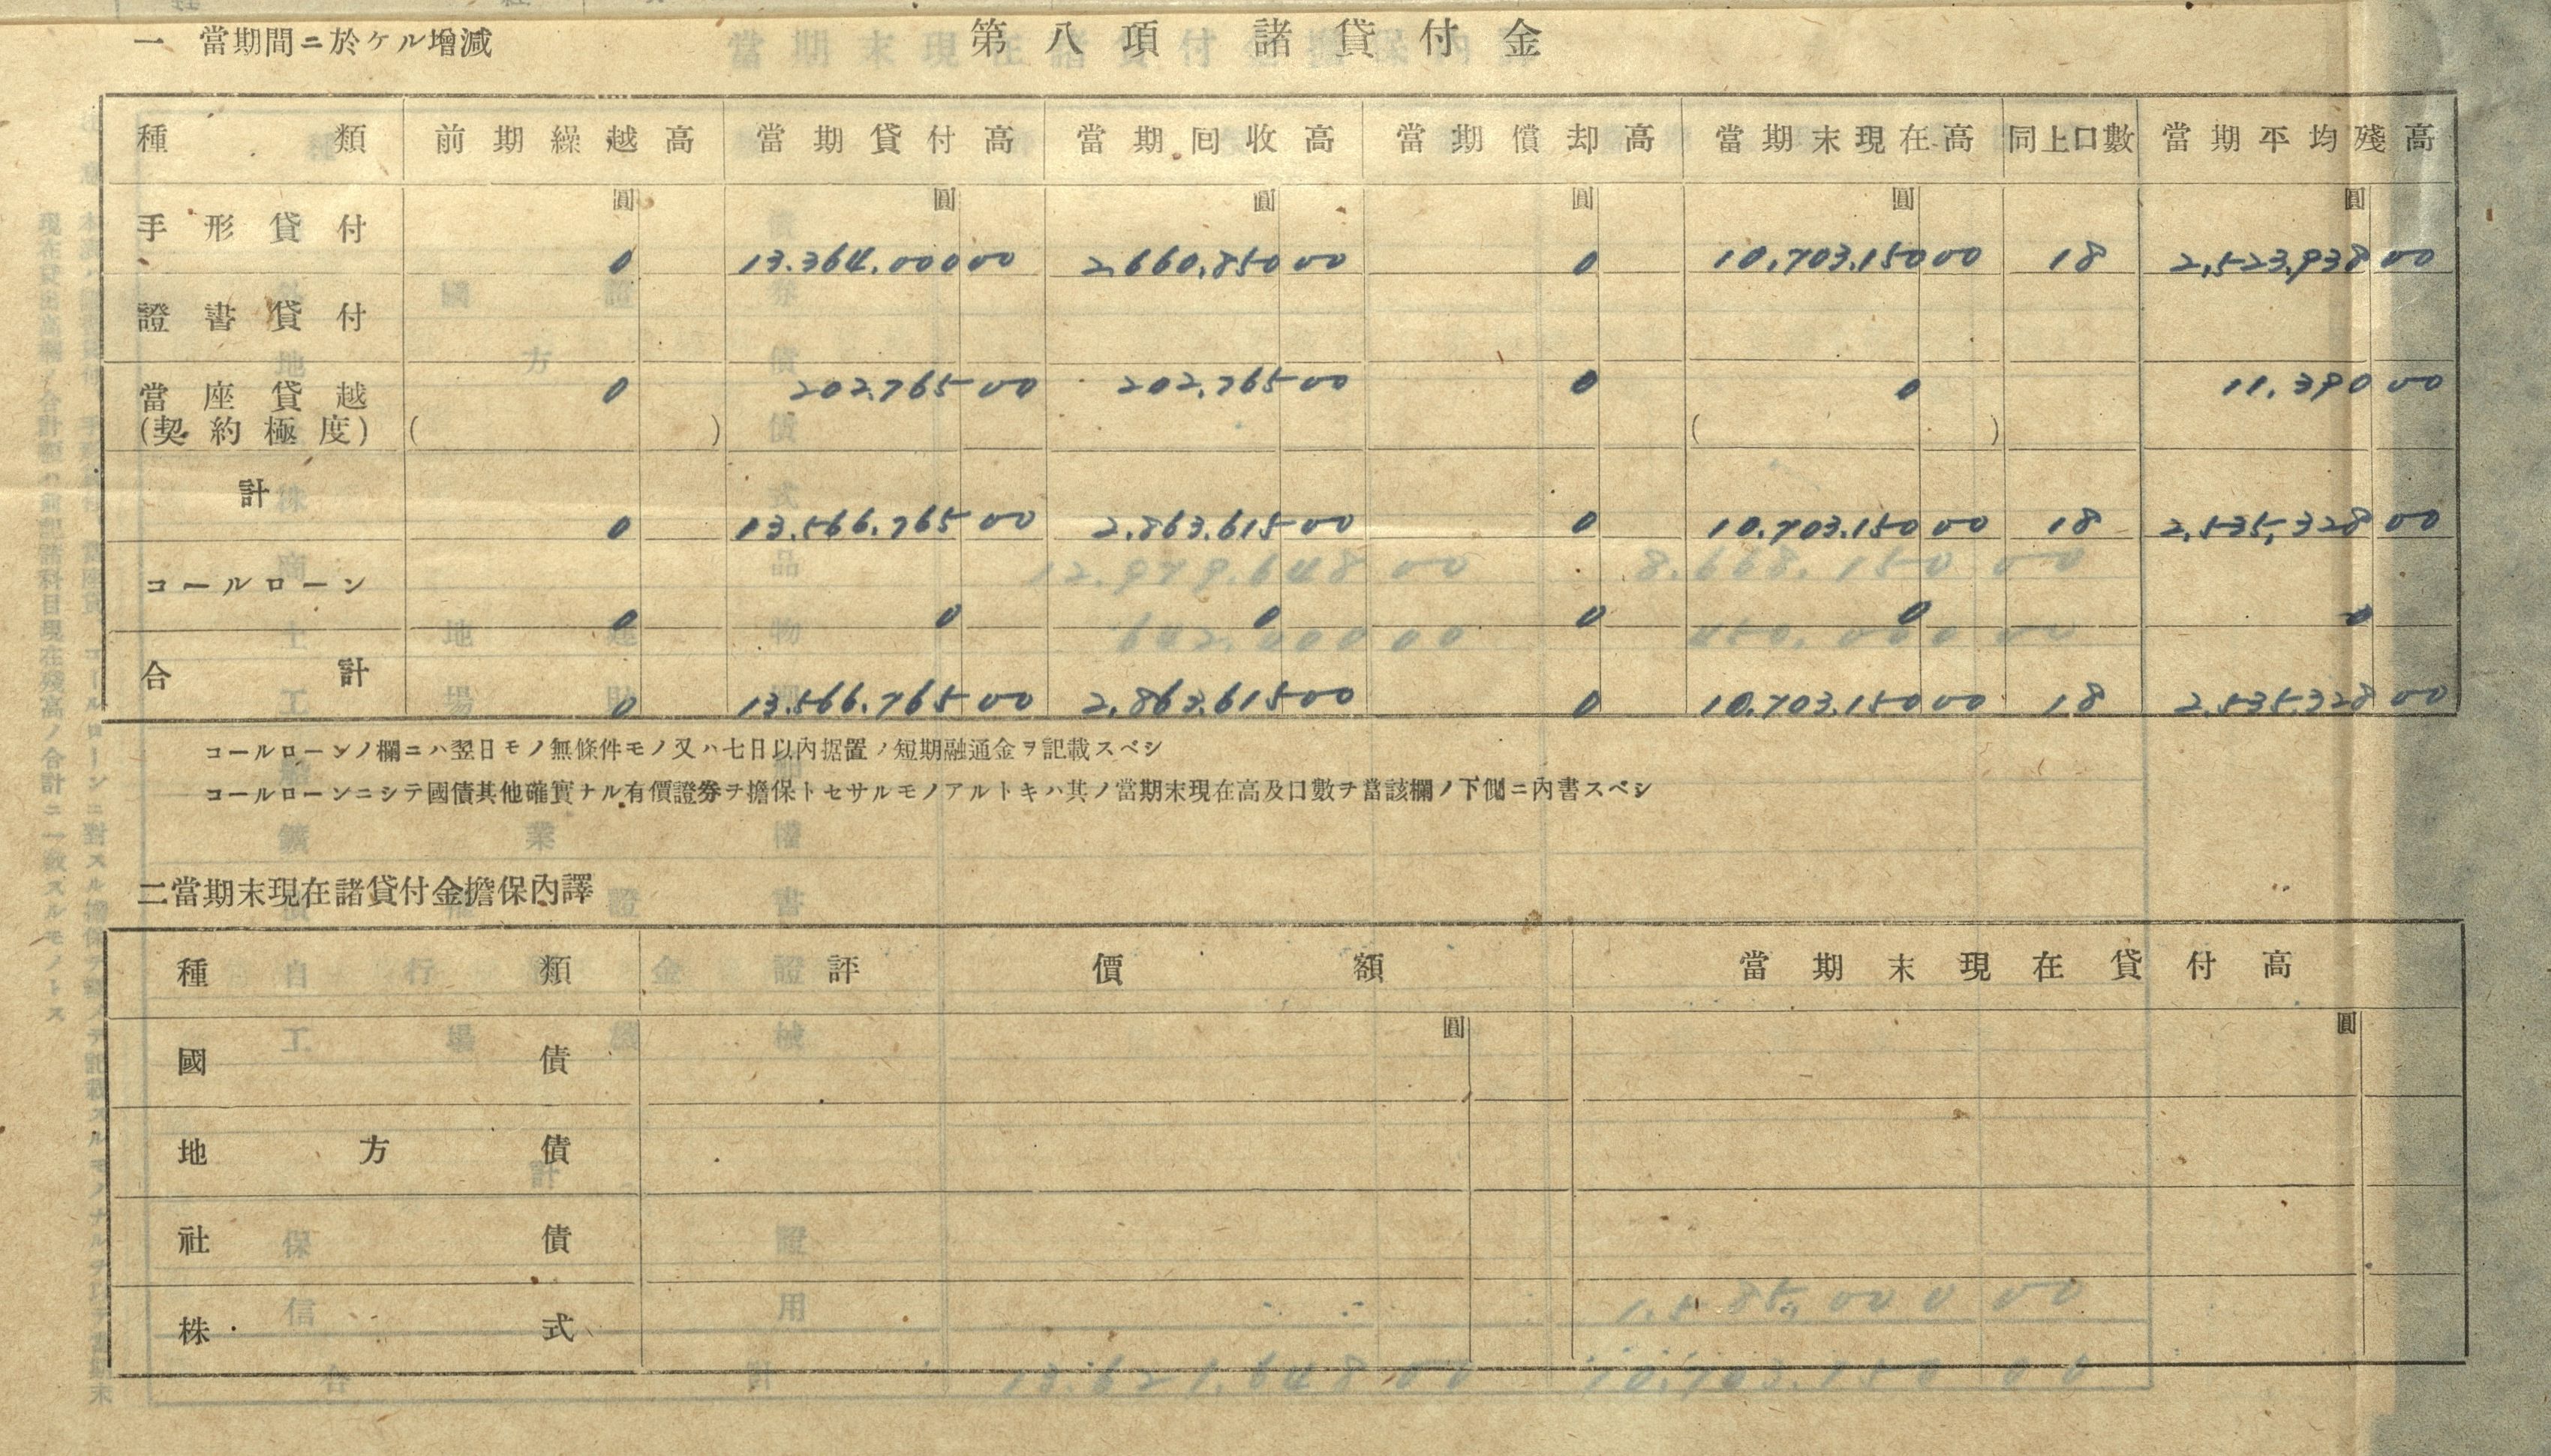 第八項 諸貸付金
一 當期間ニ於ケル增減
種類 前期繰越高 當期貸付高 當期回收高 當期償却高 當期末現在高 同上口數 當期平均殘高
圓 圓 圓 圓 圓 圓
手形貸付 0 13.364.000 00 2,660,850 00 0 10,703,150 00 18 2,523,938 00
證書貸付
當座貸越 0 202,765 00 202,765 00 0 0 11,390 00
(契約極度) ( ) ( )
計 0 13.566.765 00 2,863,615 00 0 10,703,150 00 18 2,535,328 00
コールローン 0 0 0 0 0 0
合計 0 13.566.765 00 2,863,615 00 0 10,703,150 00 18 2,535,328 00
コールローンノ欄ニハ翌日モノ無條件モノ又ハ七日以內据置ノ短期融通金ヲ記載スベシ
コールローンニシテ國債其他確實ナル有價證券ヲ擔保トセサルモノアルトキハ其ノ當期末現在高及口數ヲ當該欄ノ下側ニ內書スベシ
二當期末現在諸貸付金擔保內譯
種類 評價額 當期末現在貸付高
圓 圓
國債
地方債
社債
株式